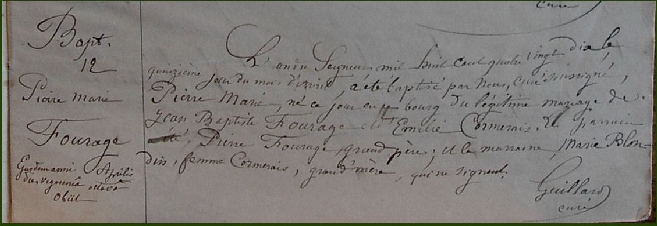 curé
Bapt.
12
Pierre Marie
Fourage
Ejusdem anni Aprilis
die vigesimâ octavâ
Obiit
L'an du Seigneur mil huit cent quatre vingt dix le
quinzième jour du mois d'avril, a été baptisé par Nous, Curé soussigné,
Pierre Marie, né ce jour au bourg du légitime mariage de
Jean Baptiste Fourage et d'Emilie Cormerais. Le parrain
a été Pierre Fourage, grand père; et la marraine, Marie Blon-
din, femme Cormerais, grand'mère, qui ne signent.
Guillard
curé